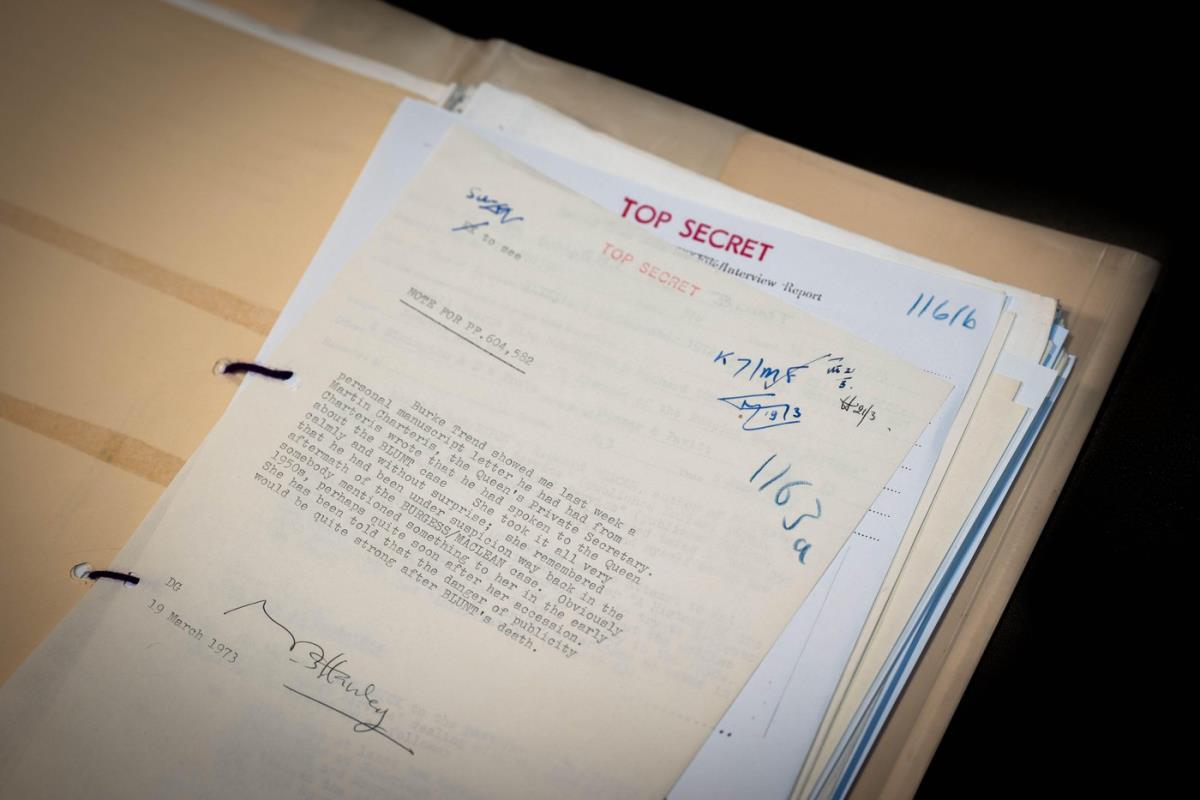 TOP SECRET
Note/Interview Report
116/b
TOP SECRET
to see
NOTE FOR PP.604,582
K7/
1973
21/3
1163a
Burke Trend showed me last week a
personal manuscript letter he had had from
Martin Charteris, the Queen's Private Secretary.
Charteris wrote that he had spoken to the Queen
about the BLUNT case. She took it all very
calmly and without surprise; she remembered
that he had been under suspicion way back in the
aftermath of the BURGESS/MACLEAN case. Obviously
somebody mentioned something to her in the early
1950s, perhaps quite soon after her accession.
She has been told that the danger of publicity
would be quite strong after BLUNT's death.
DG
19 March 1973